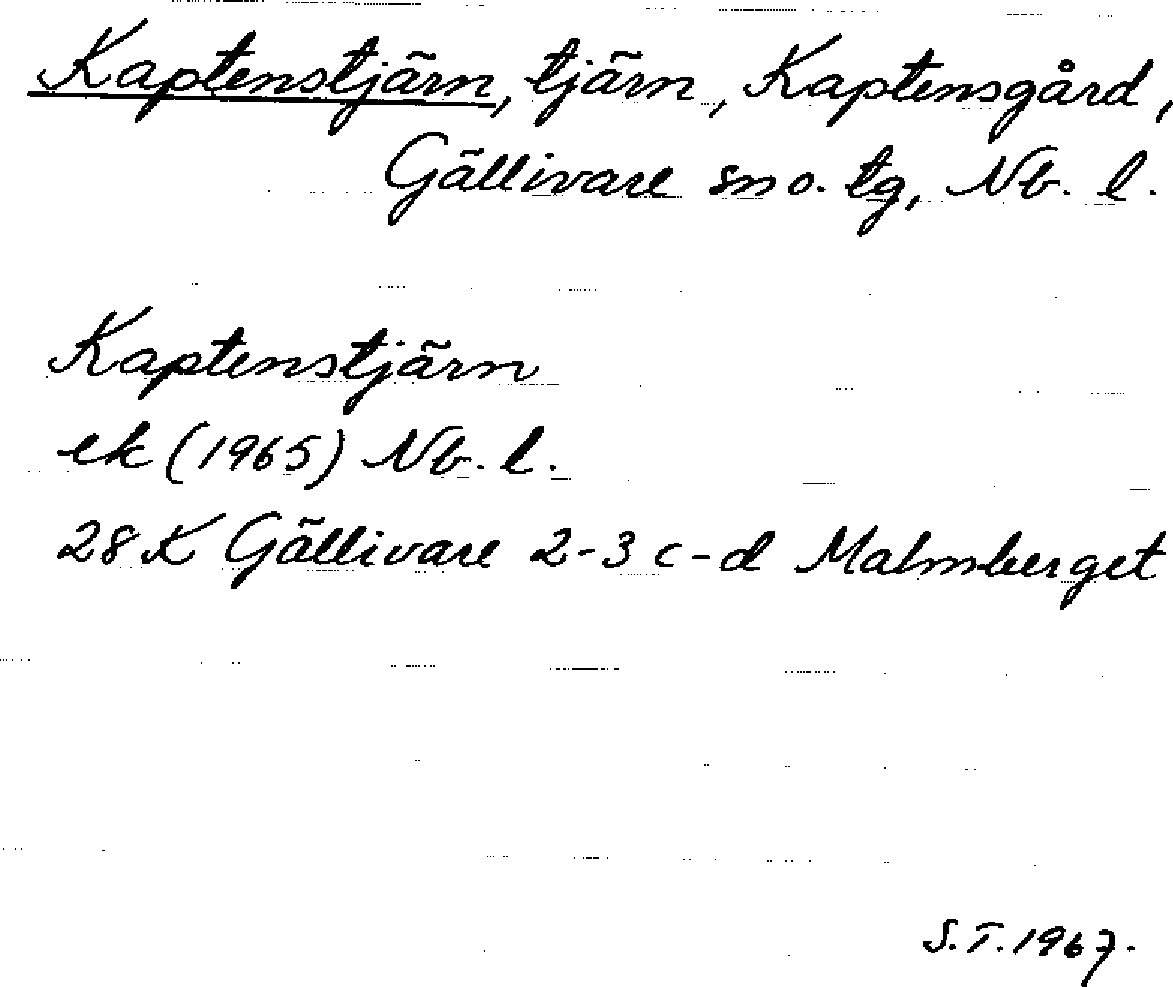 Kaptenstjärn, tjärn, Kaptensgård,
Gällivare sn o. tg, Nb. l.
Kaptenstjärn
ek (1965) Nb. l.
28 K Gällivare 2-3 c-d Malmberget
S.T. 1967.